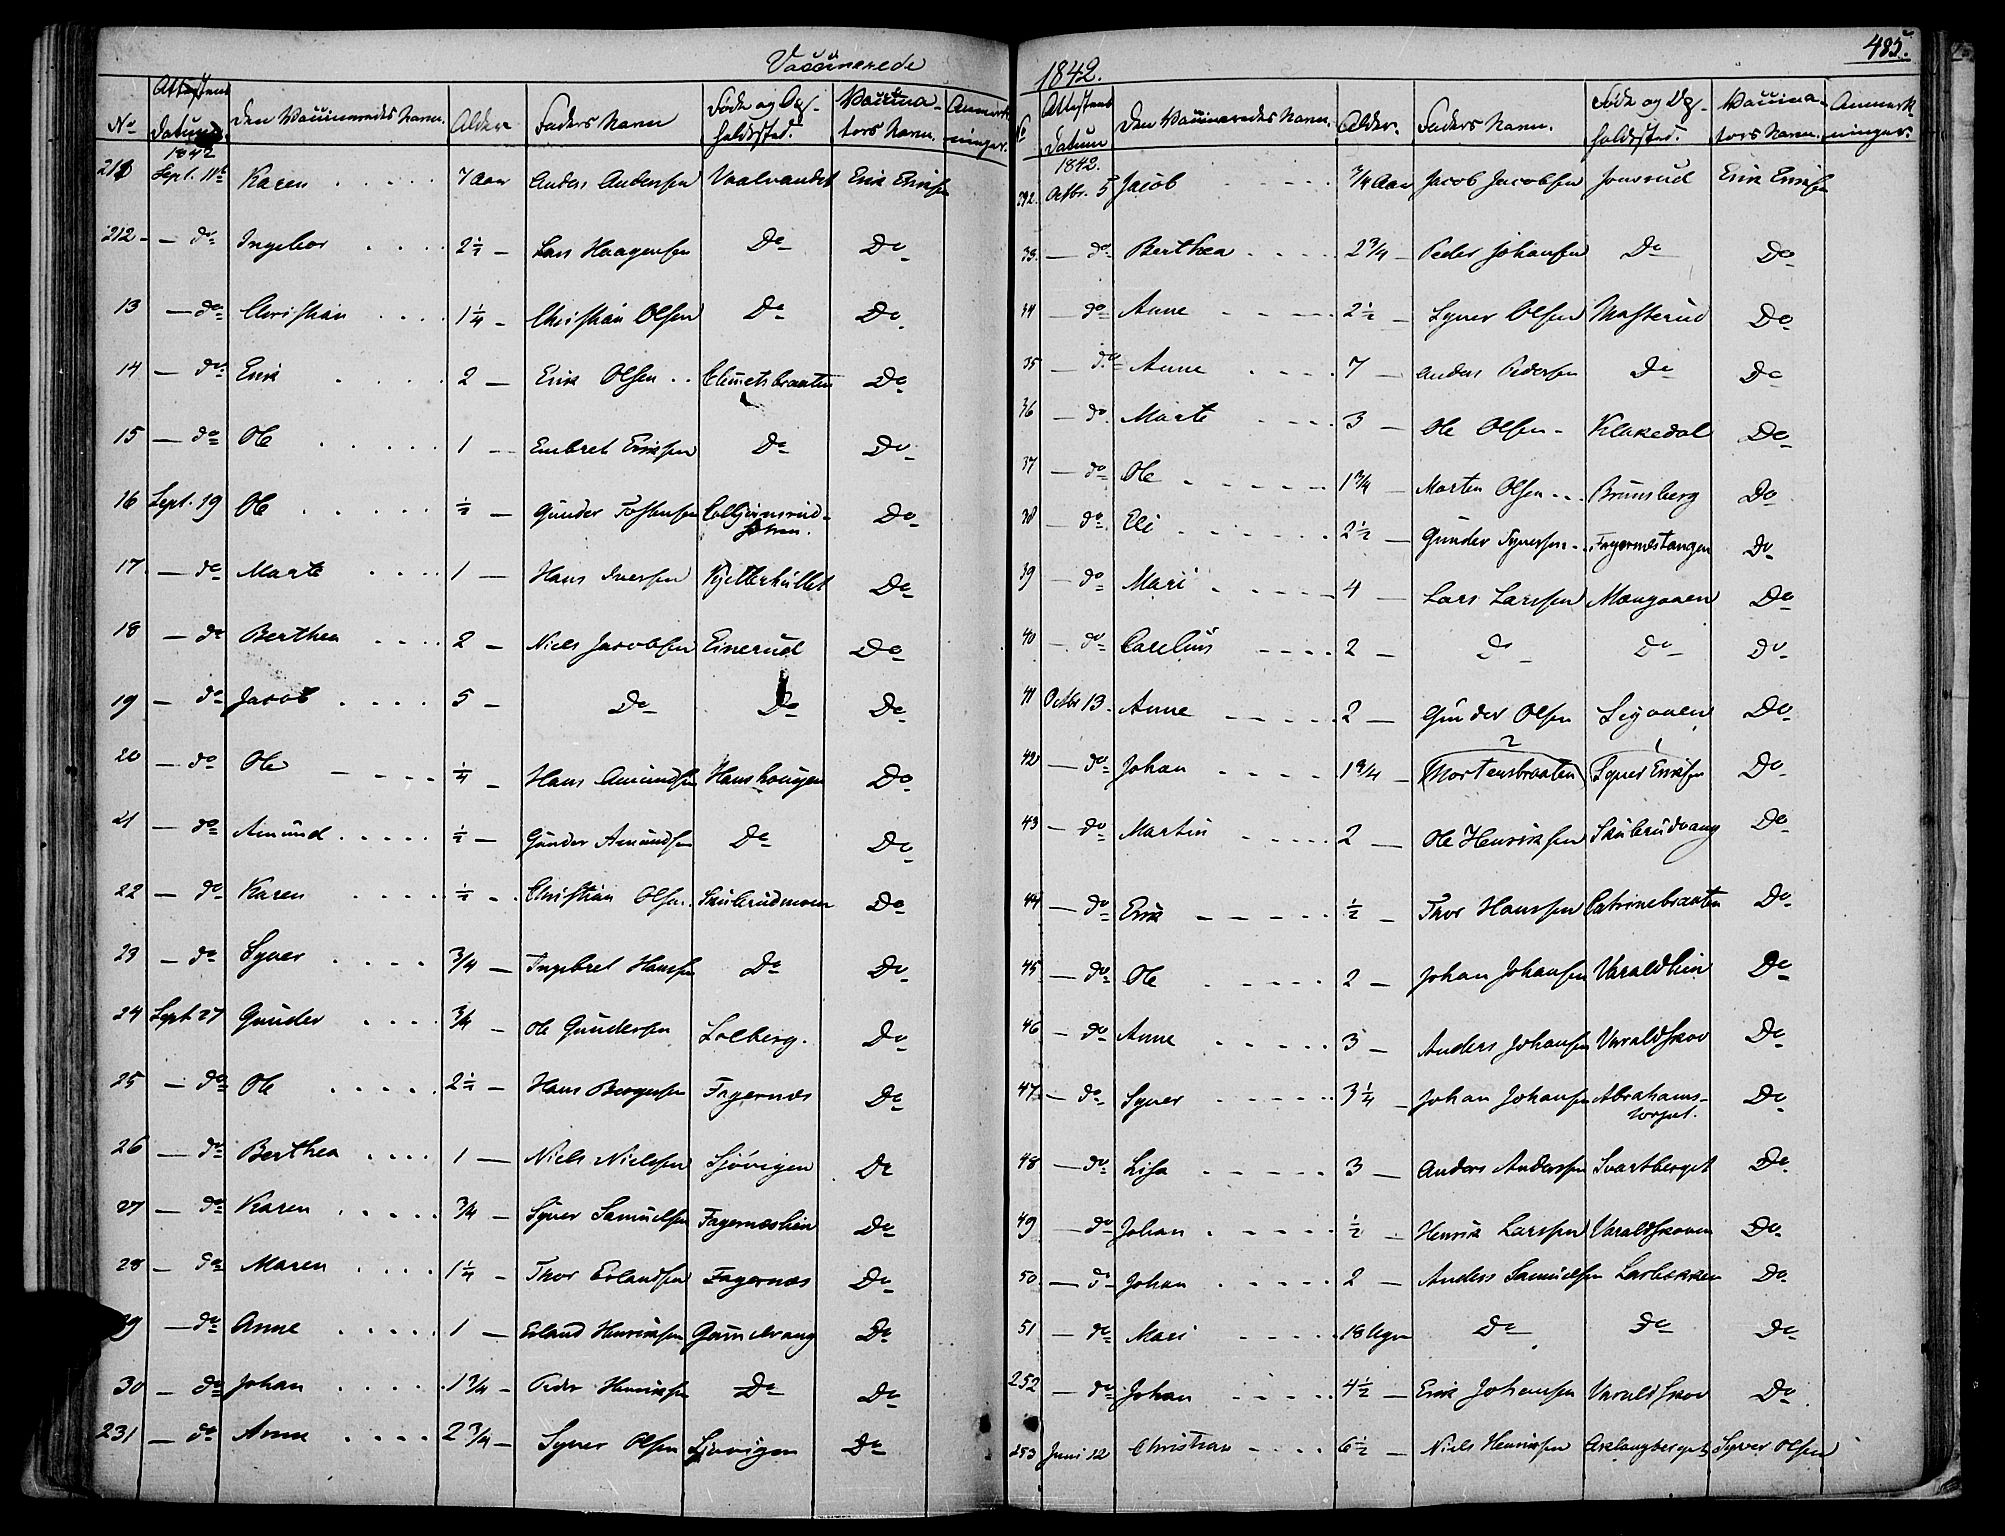 Vaccinerede
No Attestens Datum. Den Vaccineredes Navn. Alder Faders Navn Føde og Op-holdssted. Vaccina-tors Navn. Anmærk-ninger.
1842
211 Sept. 11te Karen 7 Aar Anders Andersen Vaalvandet Erik Eriksen
212 - do Ingebor 2½ - Lars Haagensen Do Do
13 - do Christian 1¼ - Christian Olsen Do Do
14 - do Erik 2 - Erik Olsen Climetsbraaten Do
15 - do Ole 1 - Embret Eriksen Do Do
16 Sept. 19 Ole ½ - Gunder Tostensen Do
17 - do Marte 1 - Hans Iversen Kjelterhullet Do
18 - do Berthea 2 - Niels Jacobsen Einerud Do
19 - do Jacob 5 - Do Do Do
20 - do Ole ¼ - Hans Amundsen Hanshougen Do
21 - do Amund ½ - Gunder Amundsen Do Do
22 - do Karen ½ - Christian Olsen Skulrudmoen Do
23 - do Syver 3/4 - Ingebret Hansen Do Do
24 Sept 27 Gunder 3/4 - Ole Gundersen Solberg. Do
25 - do Ole 2½ - Hans Borgersen Fagernæs Do
26 - do Berthea 1 - Niels Nielssen Sjøvigen Do
27 - do Karen 3/4 - Syver Samuelsen Fagernæslien Do
28 - do Maren 1¼ - Thor Erlandsen Fagernæs Do
29 - do Anne 1 - Erland Henriksen Do
30 - do Johan 1 3/4 - Peder Henriksen Do Do
231 - do Anne 2 3/4 - Syver Olsen Sjøvigen Do
485.
1842.
No Attestens Datum Den Vaccineredes Navn. Alder. Faders Navn. Føde og Op-holdssted. Vaccina-tors Navn. Anmærk-ninger.
1842.
232. Octbr. 5 Jacob 3/4 Aar Jacob Jacobsen Jonsrud Erik Eriksen
33. - do Berthea 2 3/4 - Peder Johansen Do Do
34 - do Anne 2½ - Syver Olsen Masterud Do
35 - do Anne 7 - Anders Pedersen Do Do
36 - do Marte 3 - Ole Olsen - Klakedal Do
37 - do Ole 1 3/4 - Morten Olsen Brunsberg Do
38 - do Eli 2½ - Gunder Syversen Fagernæstangen Do
39 - do Mari 4 - Lars Larssen Mangonen Do
40 - do Carelius 2 - Do Do Do
41 Octbr 13. Anne 2 - Gunder Olsen Sigonen Do
42 - do Johan 1 3/4 - 2 (Mortensbraaten) 1 (Syver Eriksen Do
43 - do Martin 2 - Ole Henriksen Skulrudvang Do
44 - do Erik ½ - Thor Hanssen Catrinebraaten Do
45 - do Ole 2 - Johan Johansen Varaldlien Do
46 - do Anne 3 - Anders Johansen Varaldskov Do
47 - do Syver 3¼ - Johan Johansen Abrahams-torpet. Do
48 - do Lisa 3 - Anders Anderssen Svartberget Do
49 - do Johan ½ - Henrik Larssen Varaldskoven Do
50. - do Johan 2 - Anders Samuelsen Larbekken Do
51 - do Mari 18 Uger Do Do Do
252 - do Johan 4½ - Erik Johansen Varaldskov Do
253 Juni 12 Christian 6½ - Niels Henriksen Aslangberget Syver Olsen